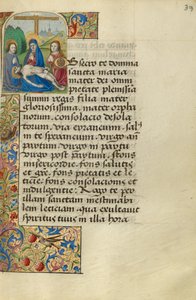 39
Obsecro te domina
sancta maria
mater dei omni
pietate plenissima
summi regis filia mater
gloriosissima. mater orpha
norum. consolacio desola
torum. via errancium. salus
sperancium. virgo an
partum virgo in partu virgo
post partum. fons
misericordie. fons salutis
et gracie. fons pietatis et le
ticie. fons consolacionis et
indulgentie. Et per
illam sanctam inestimabi
lem leticiam qua exultavit
spiritus tuus in illa hora